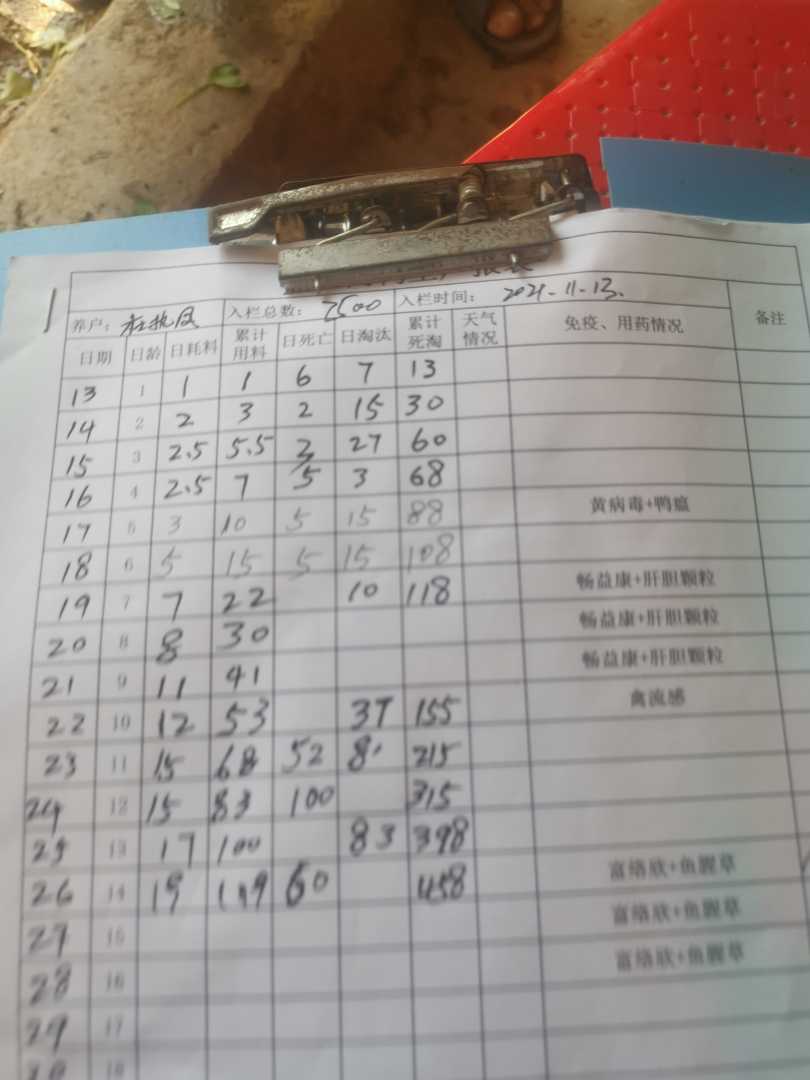 养户: 入栏总数: 7500 入栏时间: 2021-11-13.
日期 日龄 日耗料 累计用料 日死亡 日淘汰 累计死淘 天气情况 免疫、用药情况 备注
13 1 1 1 6 7 13
14 2 2 3 2 15 30
15 3 2.5 5.5 3 27 60
16 4 2.5 7 5 3 68
17 5 3 10 5 15 88 黄病毒+鸭瘟
18 6 5 15 5 15 108
19 7 7 22 10 118 畅益康+肝胆颗粒
20 8 8 30 畅益康+肝胆颗粒
21 9 11 41 畅益康+肝胆颗粒
22 10 12 53 37 155 禽流感
23 11 15 68 52 8 215
24 12 15 83 100 315
25 13 17 100 83 398
26 14 19 119 60 458 富络欣+鱼腥草
27 15 富络欣+鱼腥草
28 16 富络欣+鱼腥草
29 17
18